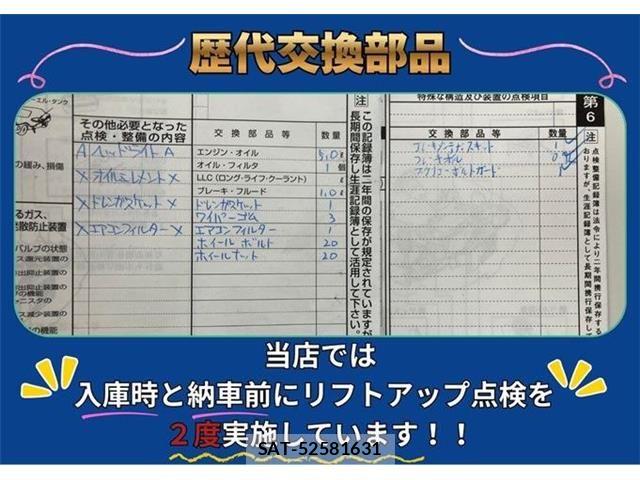 歴代交換部品
ーエル・タンク
の緩み、損傷
るガス、
発散防止装置
バルブの状態
ス還元装置の
気の機能
ャニスタの
ス減少装置の
の機能
その他必要となった
点検・整備の内容
A ヘッドライト A
X オイルエレメント X
X ドレンガスケット X
X エアコンフィルター X
交換部品等 数量
エンジン・オイル 5.0 ℓ
オイル・フィルタ 1 個
LLC(ロング・ライフ・クーラント) ℓ
ブレーキ・フルード 1.0 ℓ
ドレンガスケット 1
ワイパーゴム 3
エアコンフィルター 1
ホイールボルト 20
ホイールナット 20
注 この記録簿は二年間の保存が規定されていますが
長期間保存し生涯記録簿として活用して下さい。
特殊な構造及び装置の点検項目
交換部品等 数量
第6
注 点検整備記録簿は法令により二年間携行保存する
おりますが、生涯記録簿として長期間携行保存して
当店では
入庫時と納車前にリフトアップ点検を
2度実施しています!!
SAT-52581631